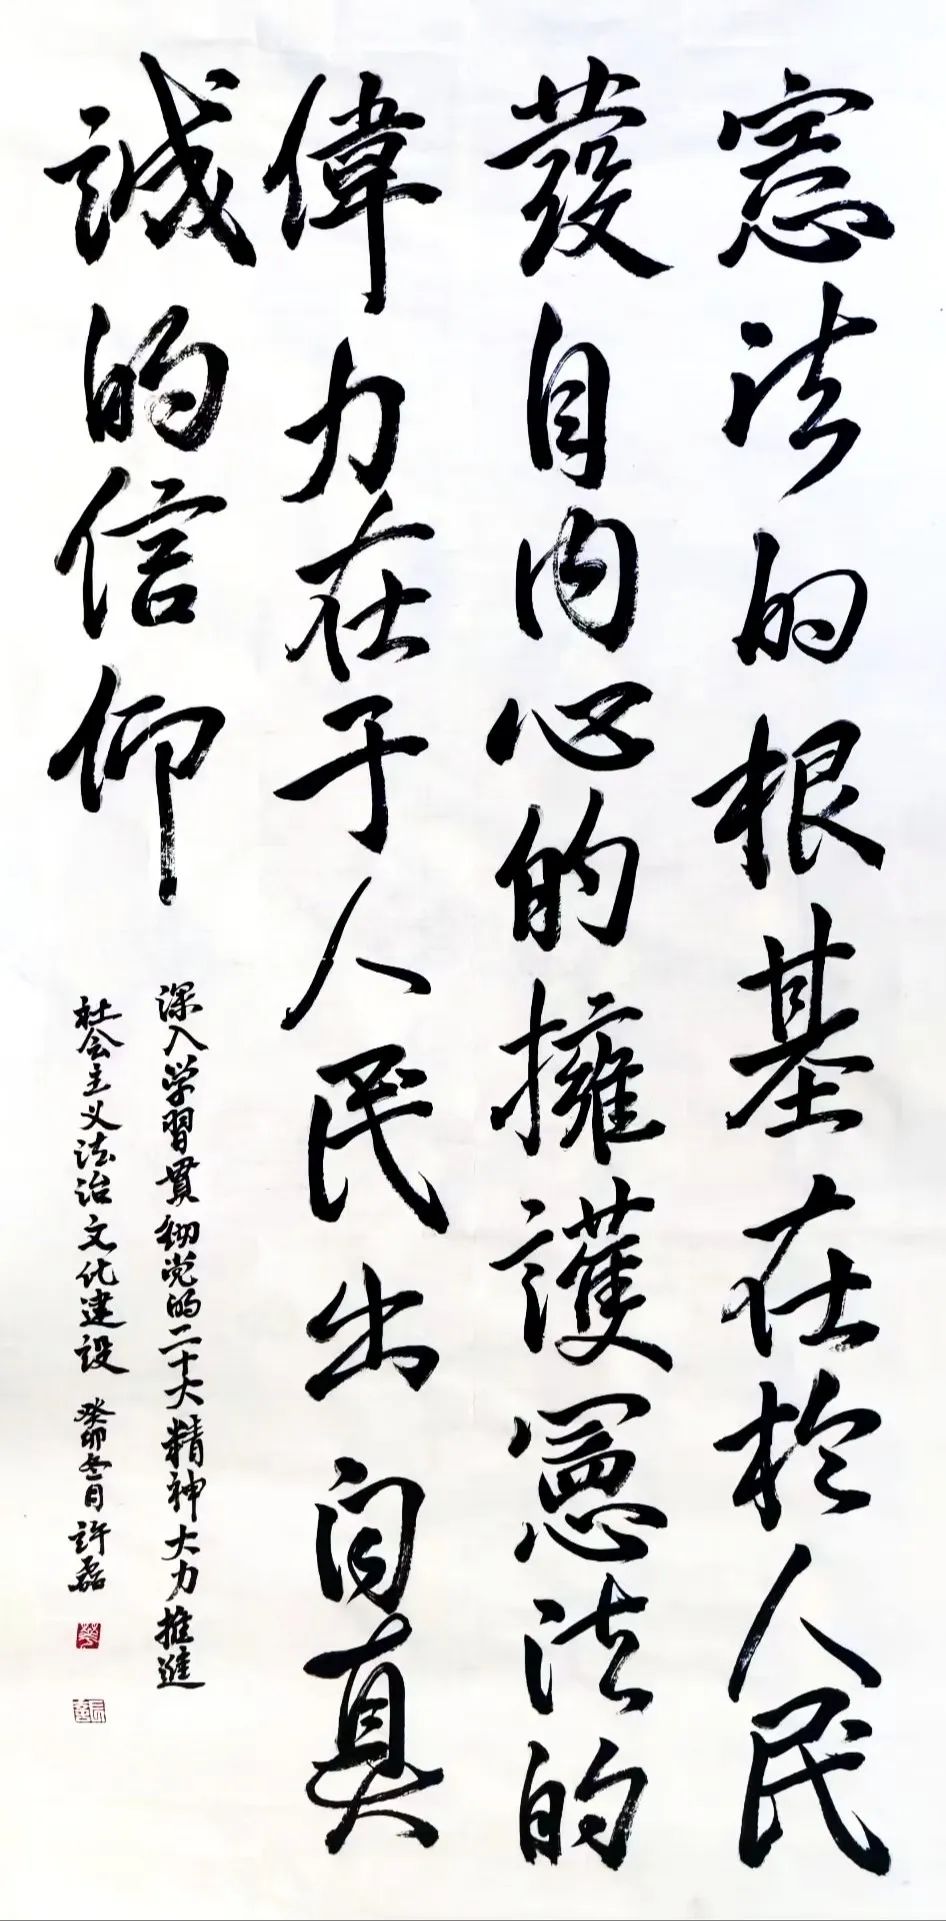 憲法的根基在於人民
發自内心的擁護憲法的
偉力在于人民出自真
誠的信仰
深入学習貫彻党的二十大精神大力推進
社会主义法治文化建設 癸卯冬月 許磊